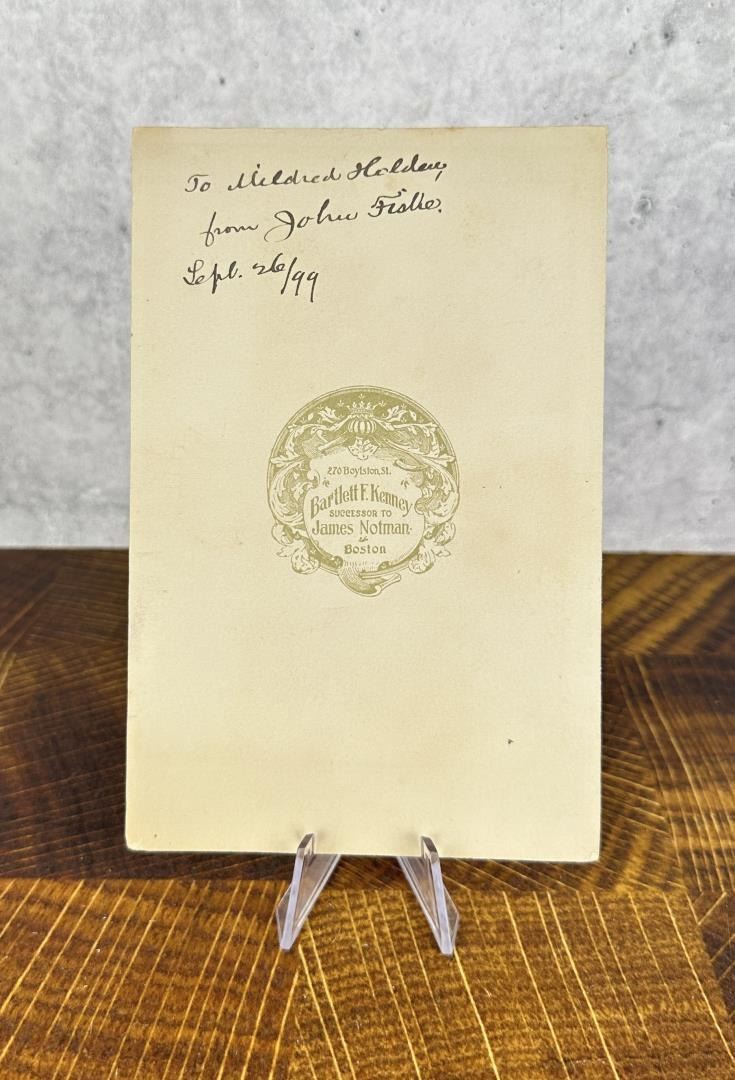 To Mildred Holden,
from John Fiske.
Sept. 26/99
270 Boylston, St.
Bartlett F. Kenney
SUCCESSOR TO
James Notman
Boston